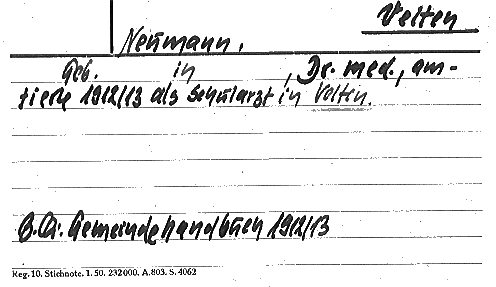 Velten
Neumann,
Geb. in , Dr. med., am-
tierte 1912/13 als Schularzt in Velten.
Gemeindehandbuch 1912/13
Reg. 10. Stichnote. 1. 50. 232000. A. 803. S. 4062